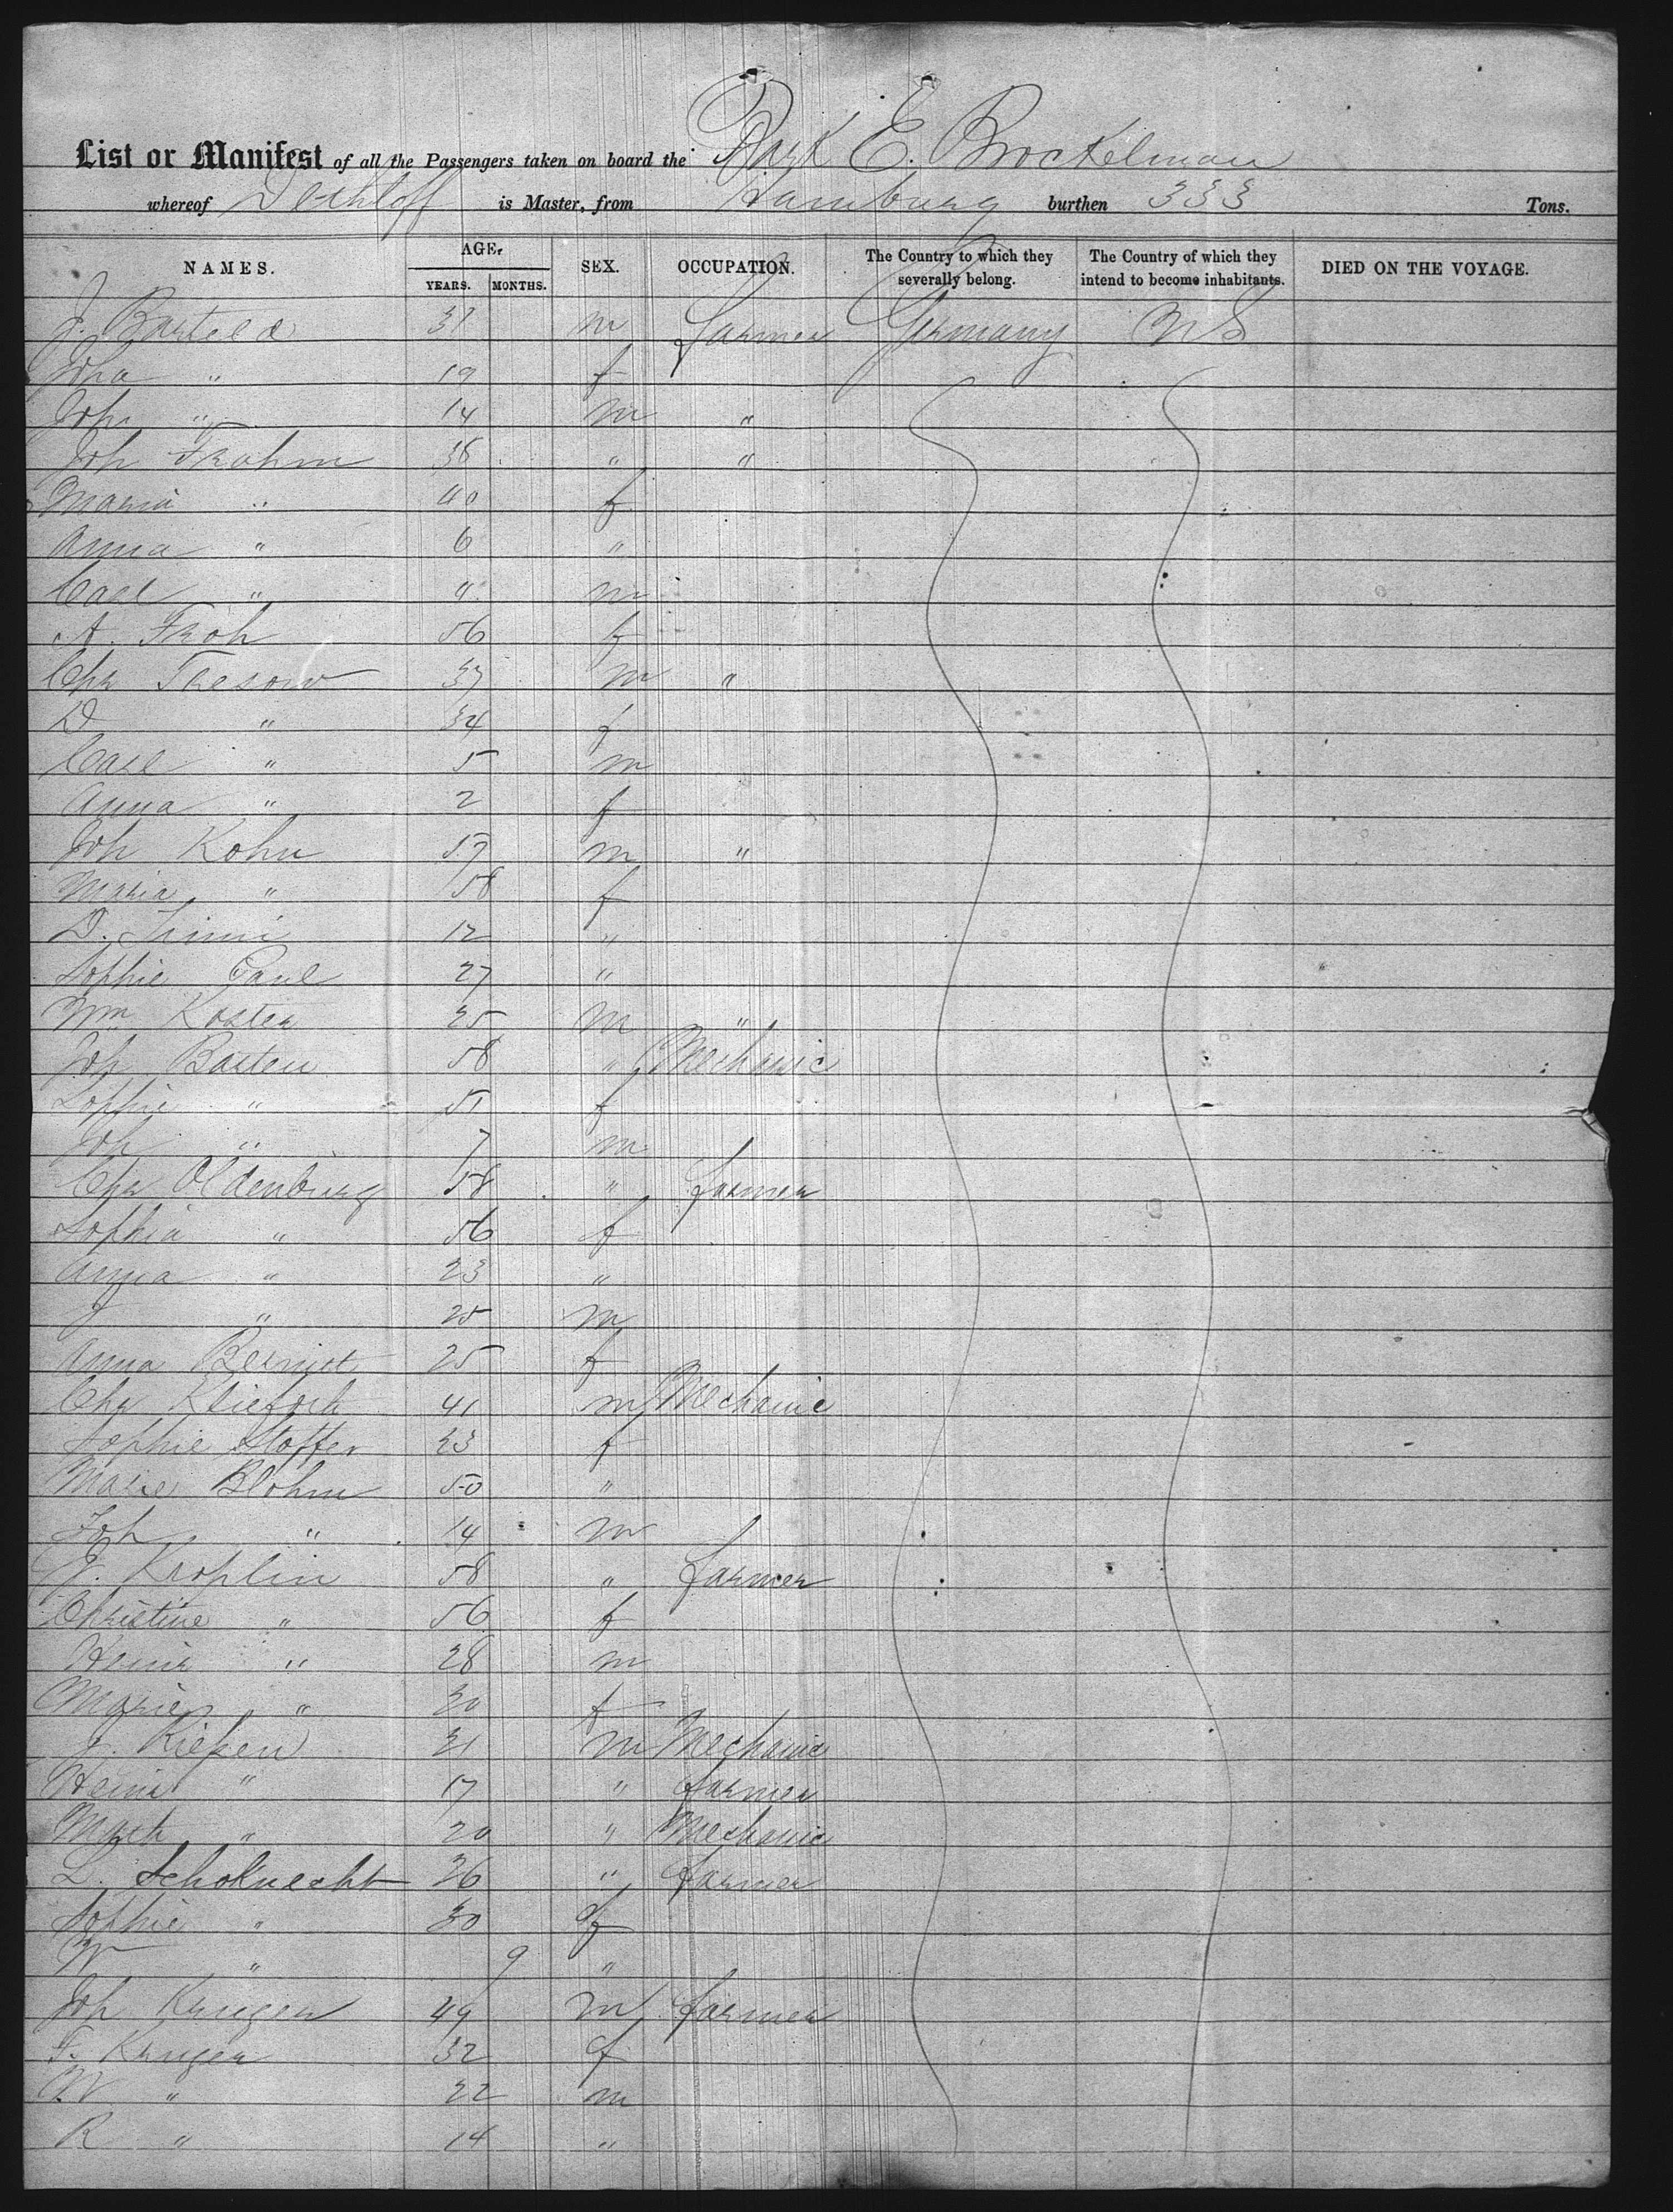 List or Manifest of all the Passengers taken on board the Bark E. Brockelman
whereof Dethloff is Master, from Hamburg burthen 333 Tons.
NAMES. AGE, YEARS. MONTHS. SEX. OCCUPATION. The Country to which they severally belong. The Country of which they intend to become inhabitants. DIED ON THE VOYAGE.
J. Barteld 31 m farmer Germany US
Joha " 19 f
Joh " 14 m "
Joh Frahm 38 " "
Maria " 40 f
Anna " 6 "
Carl " " m
A. Froh 56 f
Chr Tresow 37 m "
D " 34 f
Carl " 5 m
Anna " 2 f
Joh Kohn 57 m "
Maria " 58 f
D. 12 "
Sophie Paul 27 "
Wm Koster 25 m "
Joh Barten 58 " Mechanic
Sophie " 51 f
Joh " 7 m
Chr Oldenburg 58 " farmer
Sophia " 56 f
Anna " 23 "
J " 25 m
Anna 25 f
Chr 41 m Mechanic
Sophie Stoffer 23 f
Marie Blohm 50 "
Joh " 14 m
J. Kroplin 58 " farmer
Christine " 56 f
Heinr " 28 m
Marie " 20 f
J. 21 m Mechanic
Heinr " 17 " farmer
" 20 " Mechanic
L. Schoknecht 26 " farmer
Sophie " 30 f
W " 9 "
Joh Kruger 49 m farmer
F. Kruger 32 f
W " 22 m
R " 14 "